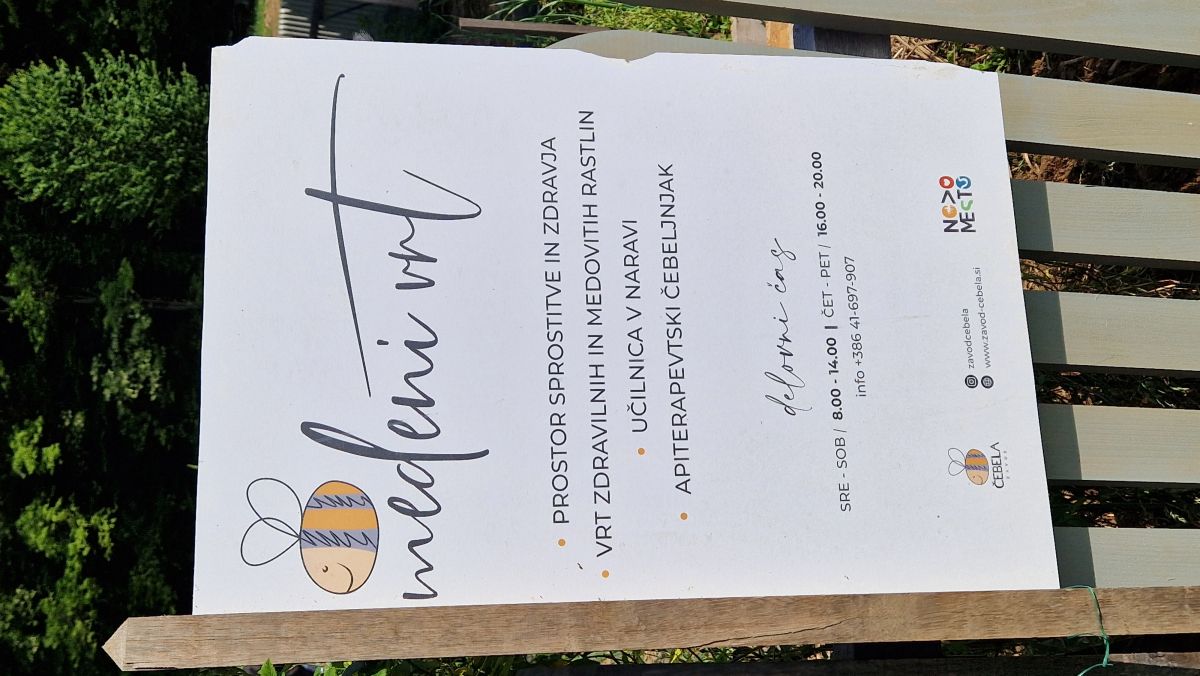 medeni vrt
• PROSTOR SPROSTITVE IN ZDRAVJA
• VRT ZDRAVILNIH IN MEDOVITIH RASTLIN
• UČILNICA V NARAVI
• APITERAPEVTSKI ČEBELJNJAK
delovni čas
SRE - SOB / 8.00 - 14.00 | ČET - PET / 16.00 - 20.00
info +386 41-697-907
ČEBELA
ZAVOD
zavodcebela
www.zavod-cebela.si
NOVO
MESTO